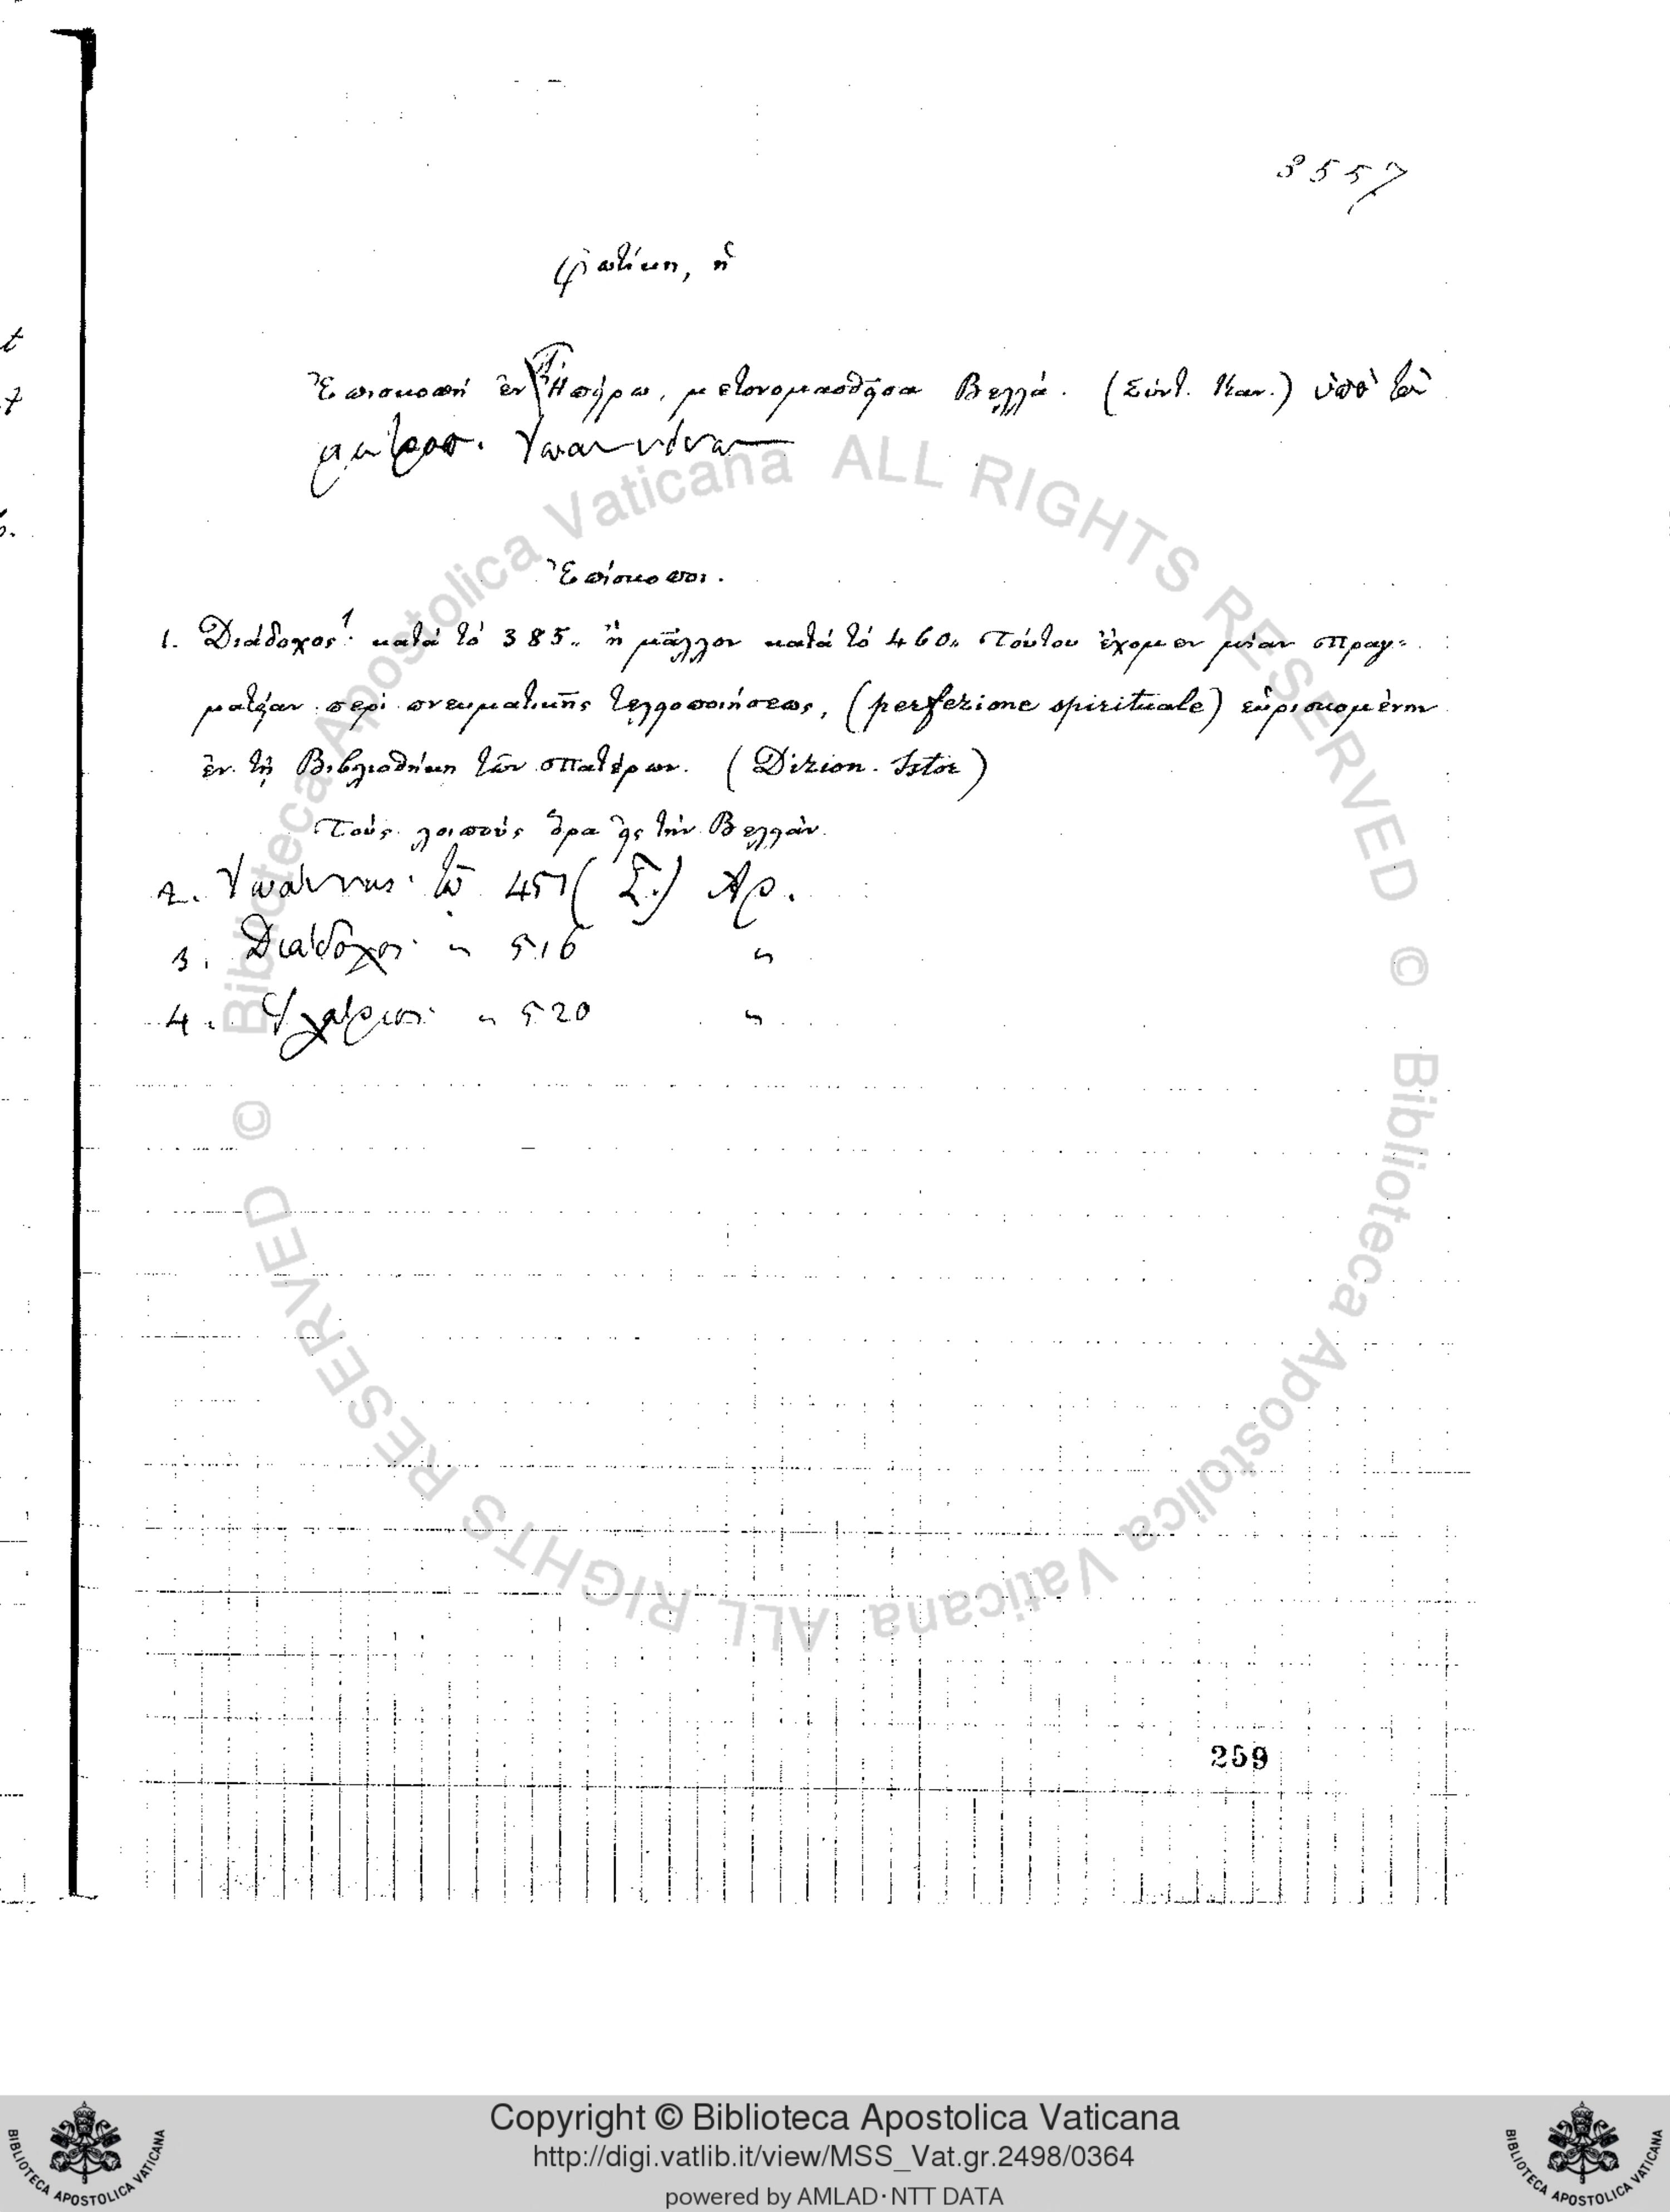 3557
Φωτίκη, ἡ
Ἐπισκοπή ἐν Ἠπείρῳ, μετονομασθεῖσα Βελλά. (Σύντ. Καν.) ὑπὸ τὸν
μητροπ. Ἰωαννίνων
Ἐπίσκοποι.
1. Διάδοχος¹· κατά τό 385„ ἤ μᾶλλον κατά τό 460„ Τούτου ἔχομεν μίαν πραγ-
ματείαν περί πνευματικῆς τελειοποιήσεως, (perfezione spirituale) εὑρισκομένην
ἐν τῇ Βιβλιοθήκῃ τῶν πατέρων. (Dizion. Istor)
Τούς λοιπούς ὅρα εἰς τήν Βελλάν.
2. Ἰωάννης· τῷ 457 (Σ.) Αρ.
3. Διάδοχος· „ 516 „
4. Ἱλάριος· „ 520 „
259
© Biblioteca Apostolica Vaticana ALL RIGHTS RESERVED
© Biblioteca Apostolica Vaticana ALL RIGHTS RESERVED
Copyright © Biblioteca Apostolica Vaticana
http://digi.vatlib.it/view/MSS_Vat.gr.2498/0364
powered by AMLAD·NTT DATA
BIBLIOTECA APOSTOLICA VATICANA
BIBLIOTECA APOSTOLICA VATICANA